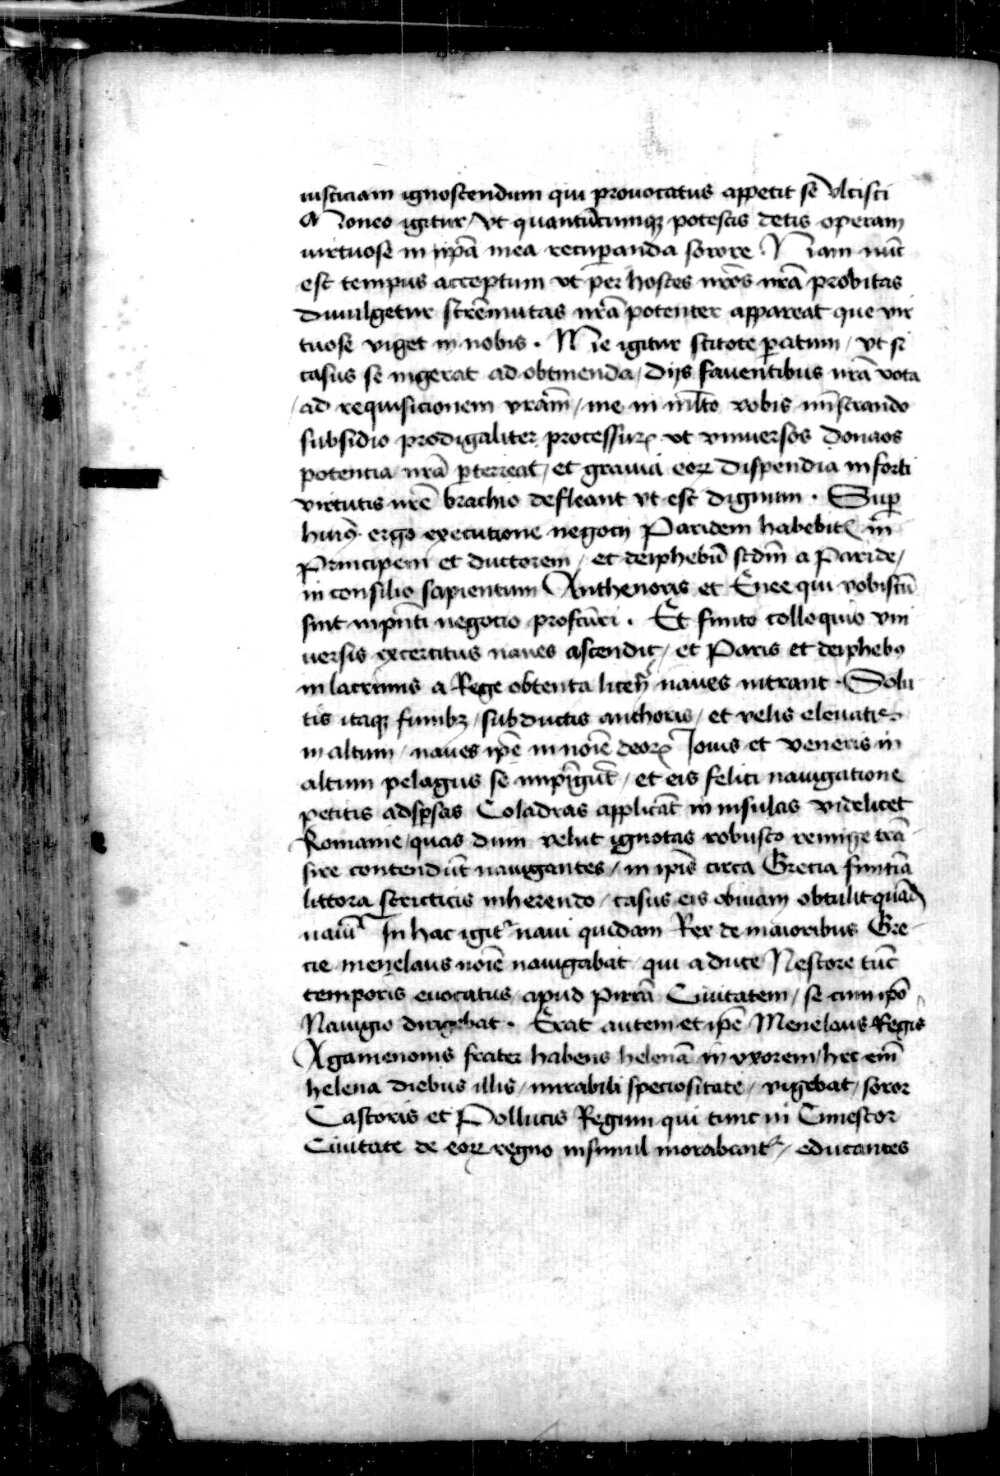 iusticiam ignoscendum qui prouocatus appetit se vlcisci
Moneo igitur / vt quantūcumqȝ potestis detis operam
virtuose in ip̄a mea recuperanda sorore Nam nūc
est tempus acceptum vt per hostes nr̄os nr̄a probitas
diuulgetur strēnuitas nr̄a potenter appareat que vir
tuose viget in nobis . Me igitur scitote paratum / vt si
casus se ingerat ad obtinenda / diis fauentibus nr̄a vota
/ ad requisicionem vr̄am / me in vobis mīstrando
subsidio prodigaliter processurꝝ vt vniuersos donaos
potencia nr̄a pterreat / et grauia eorꝝ dispendia in forti
virtutis nr̄e brachio defleant vt est dignum . Sup
huiꝯ ergo executione negocij Paridem habebit̉ in
Principem et ductorem / et deiphebū scdm̄ a Paride /
in consilio sapientum Anthenoris et Enee qui vobiscū
sunt in pn̄ti negocio profcūri . Et finito colloquio vni
uersis excercitus naues ascendit / et Paris et deiphebꝯ
in lacrimis a Rege obtenta licen̄ naues intrant . Solu
tis itaqȝ funibȝ / subductis anchoris / et velis eleuatis
in altum / naues ip̄e in noīe deorꝝ Iouis et veneris in
altum pelagus se impīgūt / et eis felici nauigatione
petitis adspersas Coladras applicāt in insulas videlicet
Romanie / quas dum velut ignotas robusto remige trā
sire contendūt nauigantes / in ip̄is circa Grecia finitīa
littora strictius inherendo / casus eis obuiam obtulit quād
nauī In hac igit̉ naui quidam Rex de maioribus Gre
cie menelaus noīe nauigabat qui a duce Nestore tūc
temporis euocatus / apud pirrā Ciuitatem / se cum ip̄o
Nauigio dirigebat . Erat autem et ip̄e Menelaus Regis
Agamenonis frater habens helenā in vxorem / hec enī
helena diebus illis / mirabili speciositate / vigebat / soror
Castoris et Pollucis Regum qui tunc in Cimestor
Ciuitate de eorꝝ regno insimul morabant̉ / educantes